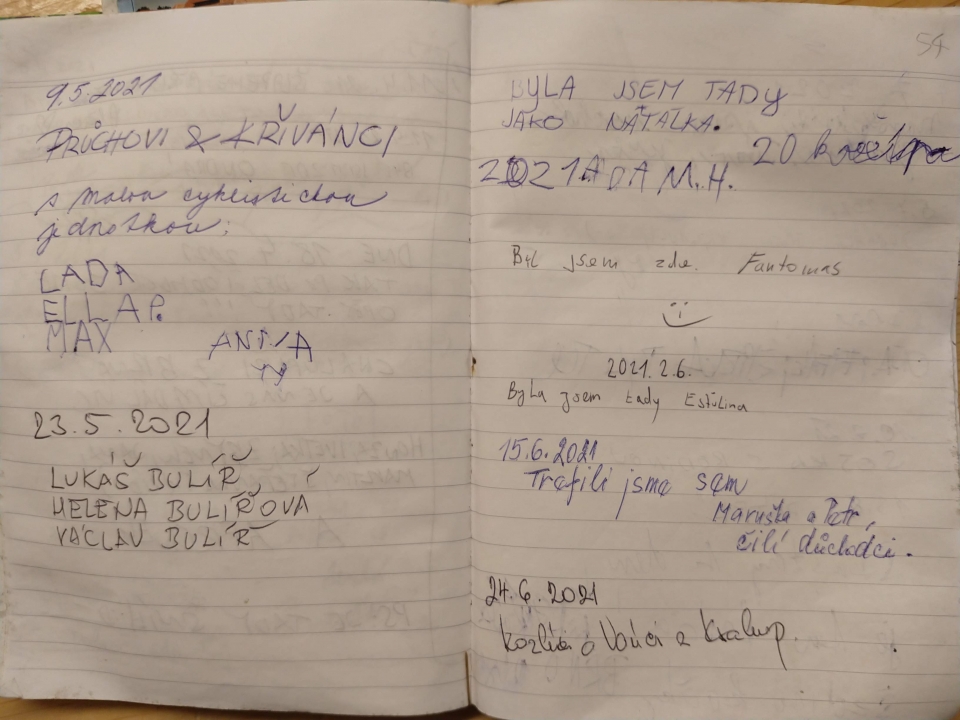 9.5.2021
PRŮCHOVI & KŘIVÁNCI
s malou cyklistickou
jednotkou:
LADA
ELLA P.
MAX
23.5.2021
LUKÁŠ BULÍŘ,
HELENA BULÍŘOVÁ
VÁCLAV BULÍŘ
54
BYLA JSEM TADY
JAKO NATÁLKA.
20
2021 ADAM.H.
Byl jsem zde. Fantomas
2021.2.6.
Byla jsem tady
15.6.2021
Trefili jsme sem
Maruška a Petr,
čilí důchodci.
24.6.2021